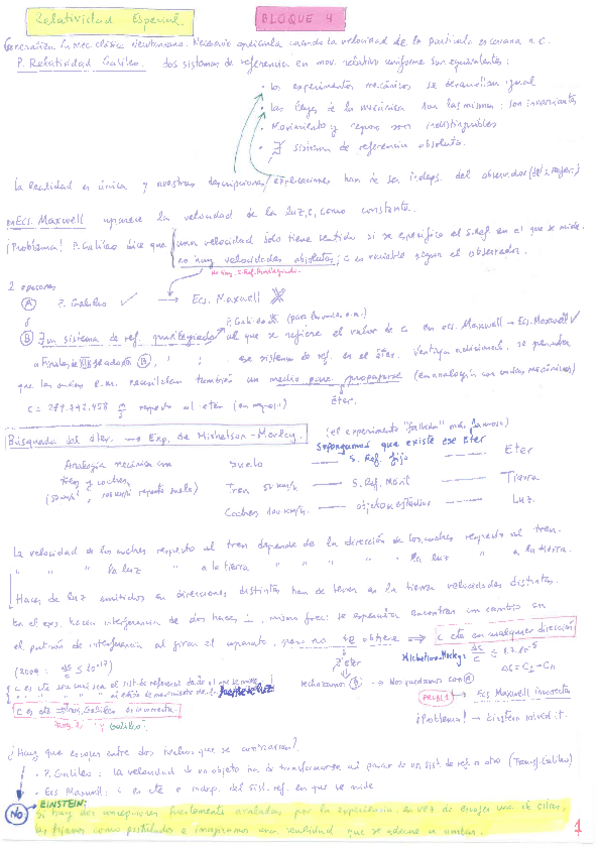 Relatividad Especial. BLOQUE 4
Generaliza la mec. clásica newtoniana. Necesario aplicarla cuando la velocidad de la partícula es cercana a c.
P. Relatividad Galileo. dos sistemas de referencia en mov. relativo uniforme son equivalentes:
· Los experimentos mecánicos se desarrollan igual
· Las leyes de la mecánica son las mismas: son invariantes
· Movimiento y reposo son indistinguibles
· ∄ sistema de referencia absoluto.
La Realidad es única y nuestras descripciones/explicaciones han de ser indeps. del observador
Ecs. Maxwell aparece la velocidad de la luz, c, como constante.
¡Problema! P. Galileo dice que una velocidad solo tiene sentido si se especifica el S.Ref en el que se mide.
no hay velocidades absolutas; c es variable según el observador.
No hay S. Ref. Privilegiado
2 opciones
A P. Galileo ✓ → Ecs. Maxwell X
ó P. Galileo X (para fenóm. e.m.)
B ∃ un sistema de ref. privilegiado al que se refiere el valor de c en ecs. Maxwell → Ecs. Maxwell ✓
a finales de XIX B, " " ese sistema de ref. es el éter. Ventaja adicional:
que las ondas e.m. necesitaban también un medio para propagarse (en analogía con ondas mecánicas)
c = 299.792.458 m/s respecto al éter (en reposo) Éter.
Búsqueda del éter. → Exp. de Michelson-Morley. (el experimento "fallido" más famoso)
Supongamos que existe ese Eter
Analogía mecánica con Suelo — S. Ref. fijo — Eter
tren y coches Tren 50 km/h — S. Ref. Móvil — Tierra
Coches 100 km/h — — Luz
La velocidad de los coches respecto al tren depende de la dirección de los coches respecto al tren.
" " " la luz " a la tierra " " " la luz " a la tierra.
Haces de luz emitidos en direcciones distintas han de tener en la tierra velocidades distintas.
En el exp. hacen interferencia de dos haces ⊥, misma frec: se esperaba encontrar un cambio en
el patrón de interferencia al girar el aparato, pero no se obtiene ⇒ c cte en cualquier dirección
∄ eter Michelson-Morley:
rechazamos B → Nos quedamos con A
c es cte sea cual sea el sist. de referencia fuente luz
PROBL 1 Ecs Maxwell incorrecta
c es cte ⇒ Galileo es incorrecta. ¡Problema! → Einstein solved it.
¿Hay que escoger entre dos hechos que se contradicen?
· P. Galileo: la velocidad de un objeto ha de transformarse al pasar de un sist. de ref. a otro (Transf. Galileo)
· Ecs Maxwell: c es cte e indep. del sist. ref. en que se mide
NO EINSTEIN:
Si hay dos concepciones fuertemente avaladas por la experiencia, en vez de escoger una de ellas,
las fijamos como postulados e imaginamos una realidad que se adecue a ambas.
1